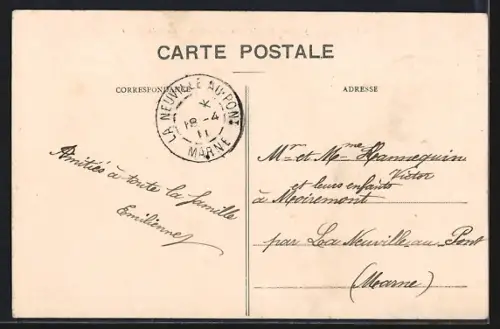 CARTE POSTALE
CORRESPONDANCE
ADRESSE
LA NEUVILLE AU-PONT
*
18 -4
11
MARNE
Amitiés à toute la famille
Emilienne
Mr et Mme Hannequin
Victor
et leurs enfants
à Moiremont
par La Neuville-au Pont
(Marne)